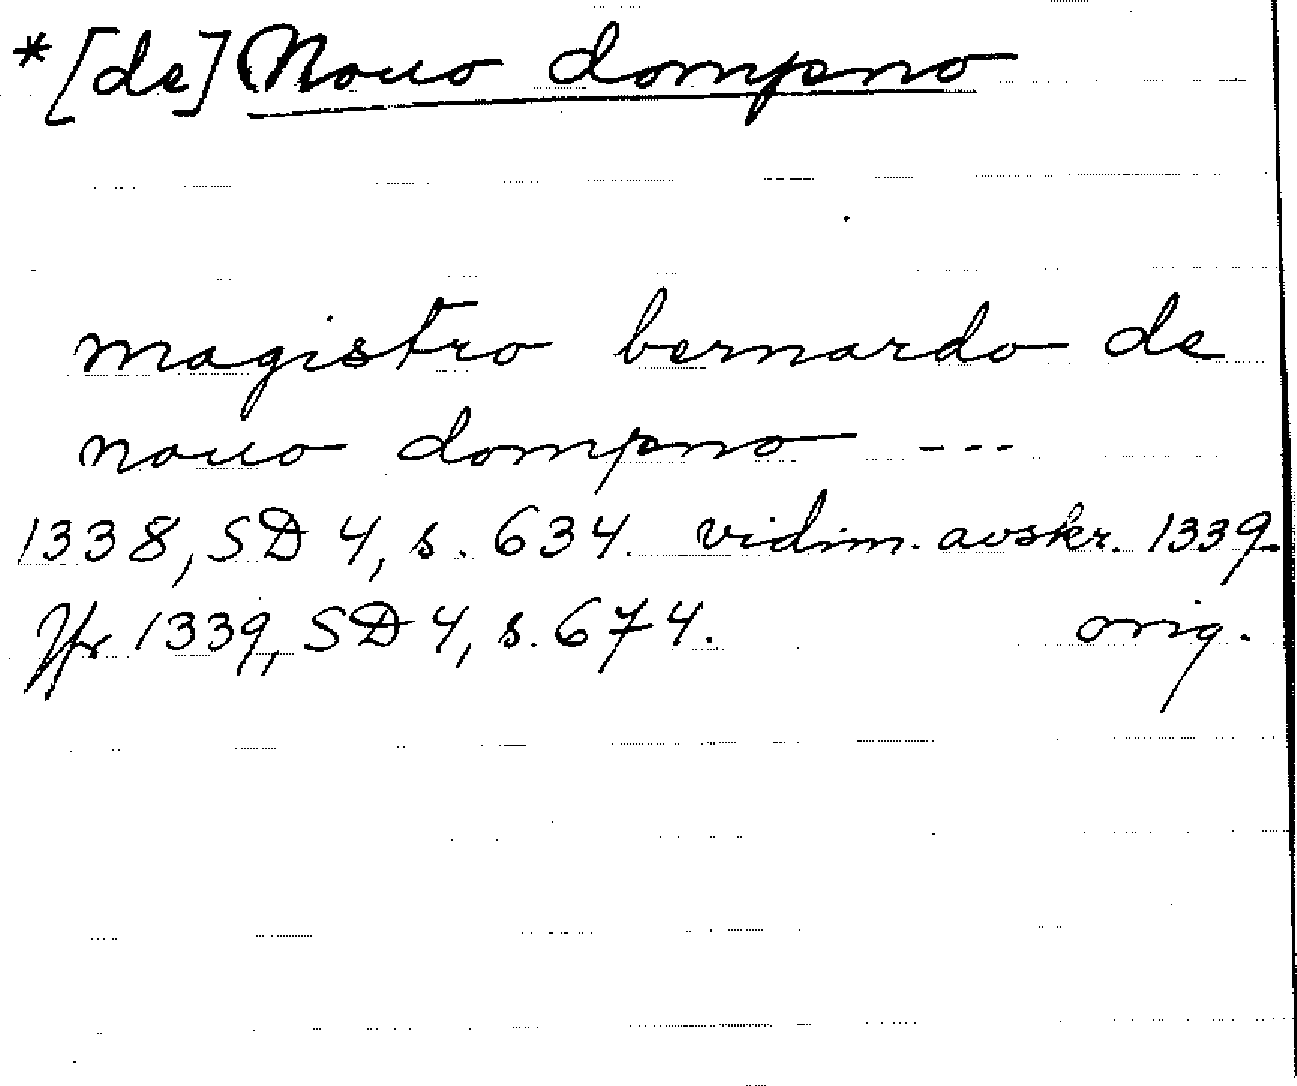 *[de] Nouo dompno
magistro bernardo de
nouo dompno ---
1338, SD 4, s. 634. vidim. avskr. 1339.
Jfr 1339, SD 4, s. 674. orig.